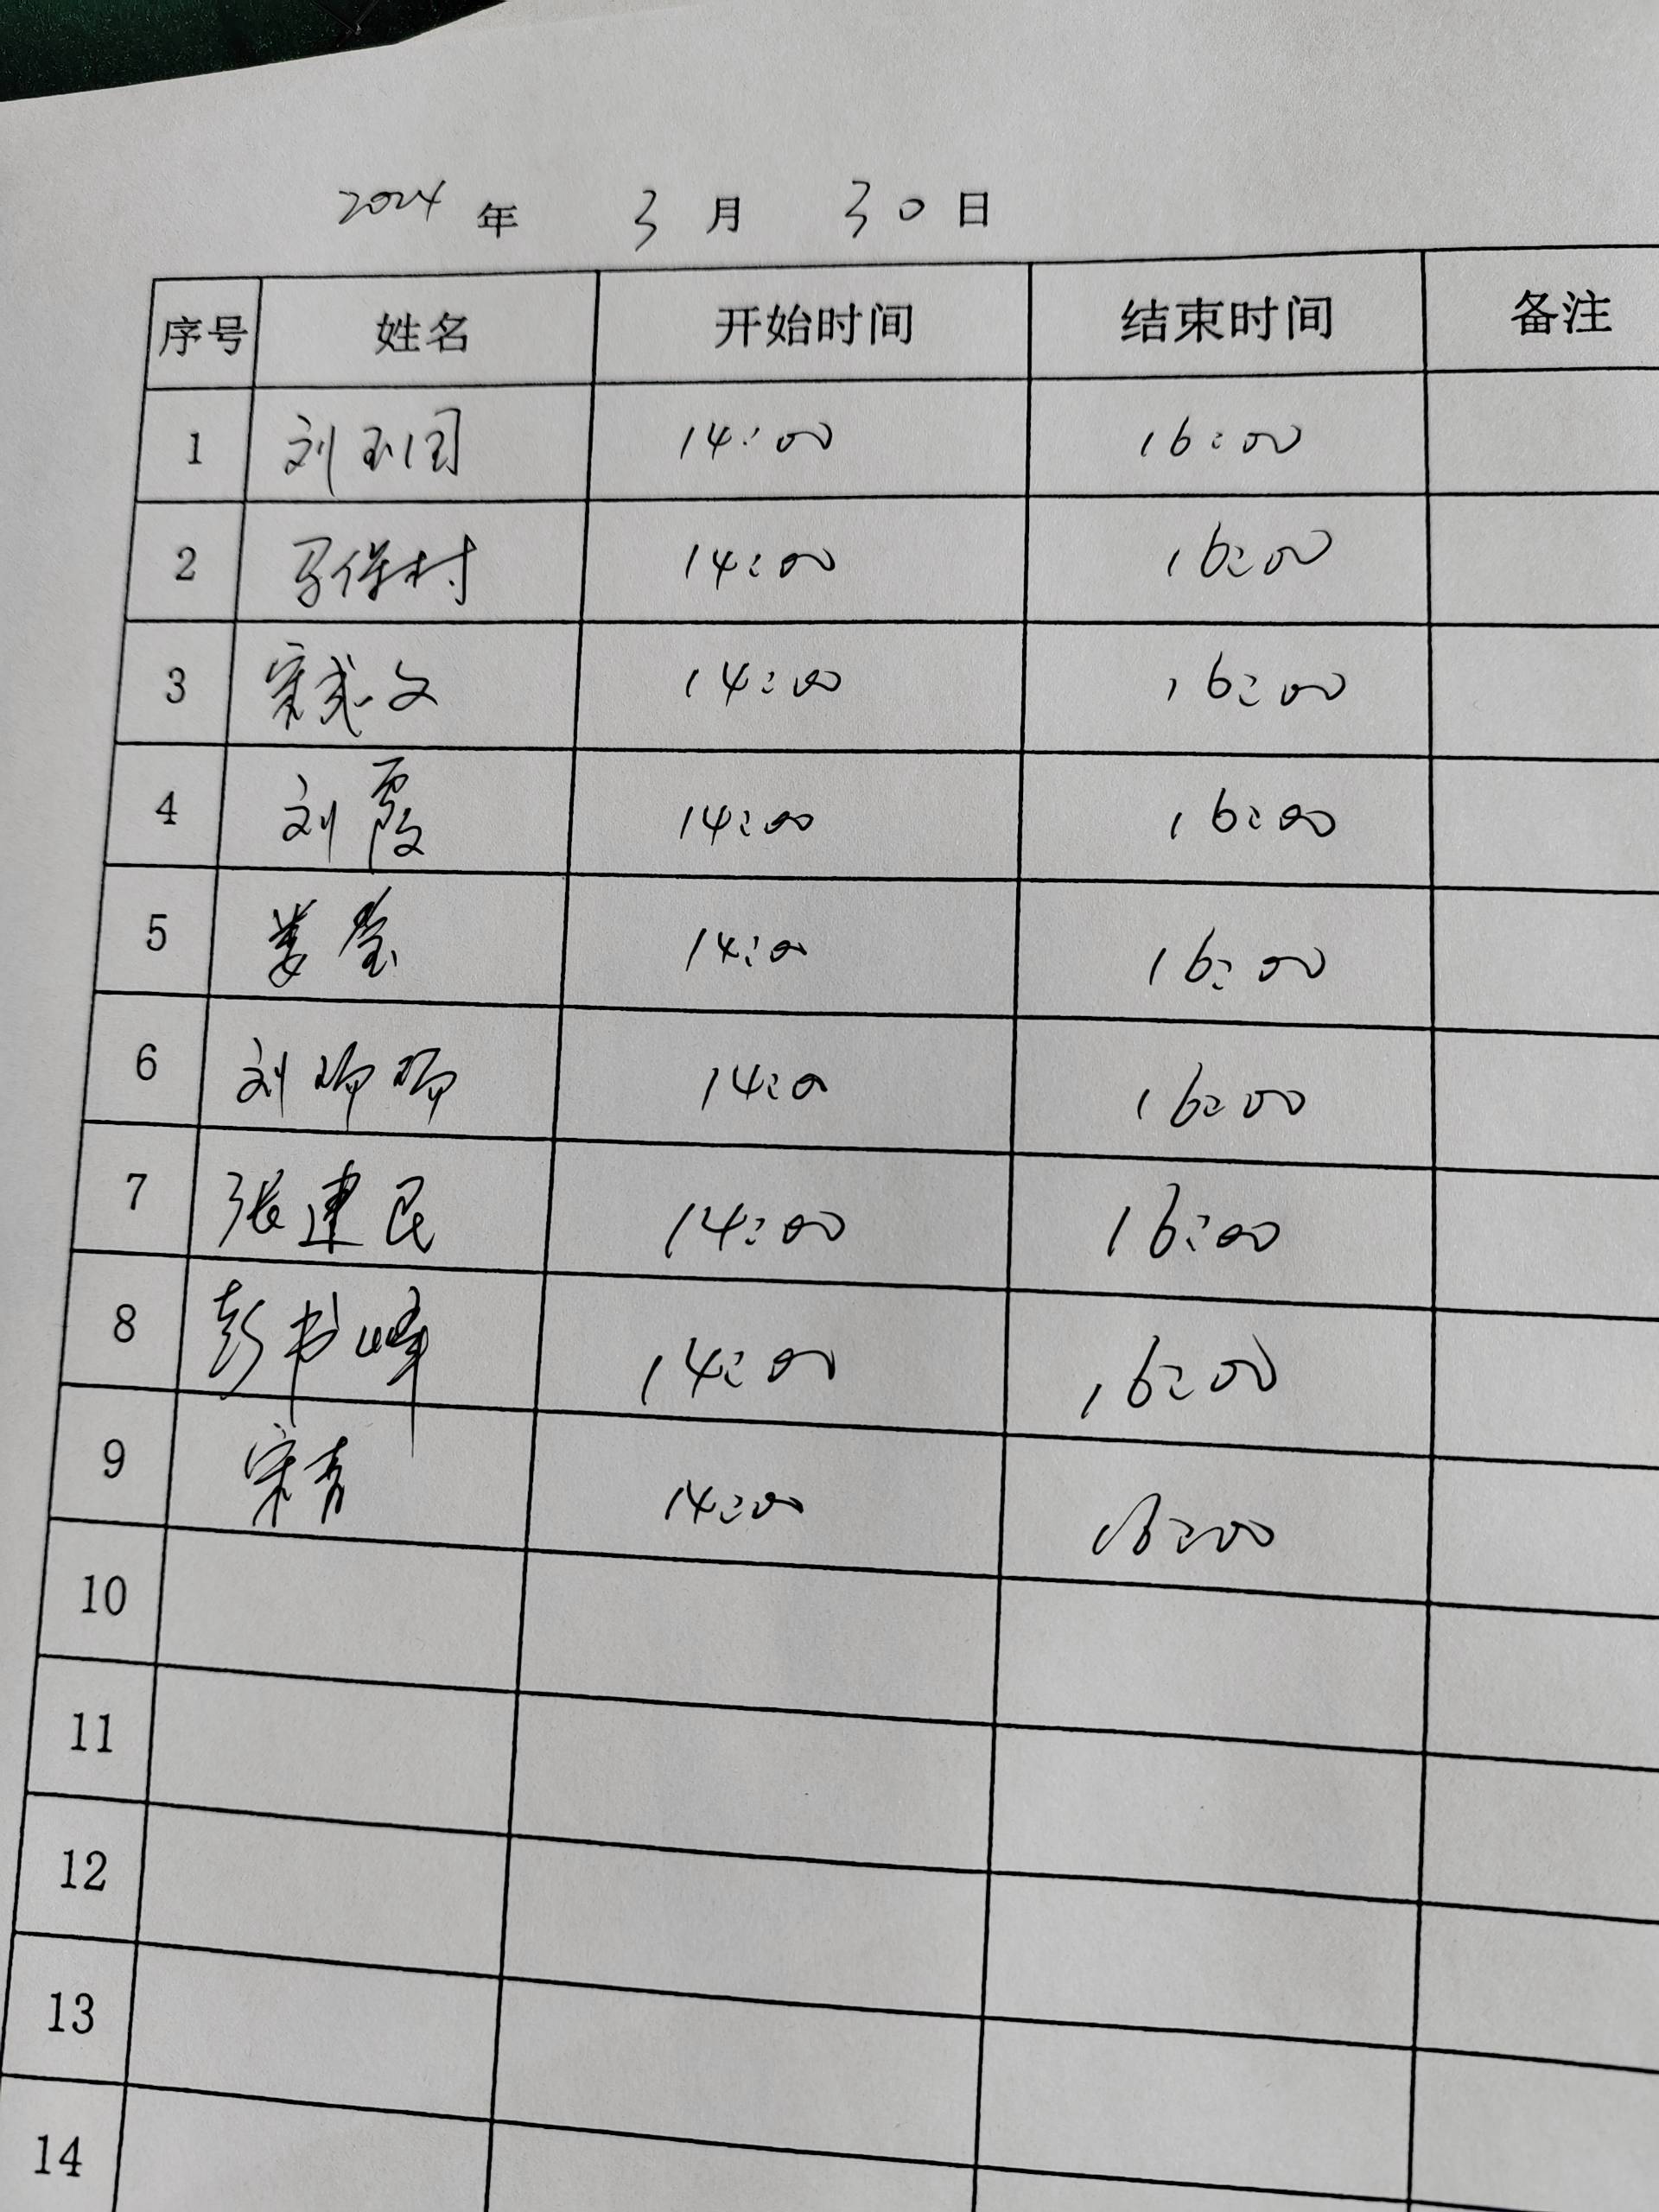 2024 年 3 月 30 日
序号 姓名 开始时间 结束时间 备注
1 刘玉国 14:00 16:00
2 马保村 14:00 16:00
3 宋成文 14:00 16:00
4 刘霞 14:00 16:00
5 姜莹 14:00 16:00
6 刘 14:00 16:00
7 张建民 14:00 16:00
8 彭书峰 14:00 16:00
9 宋秀 14:00 16:00
10
11
12
13
14